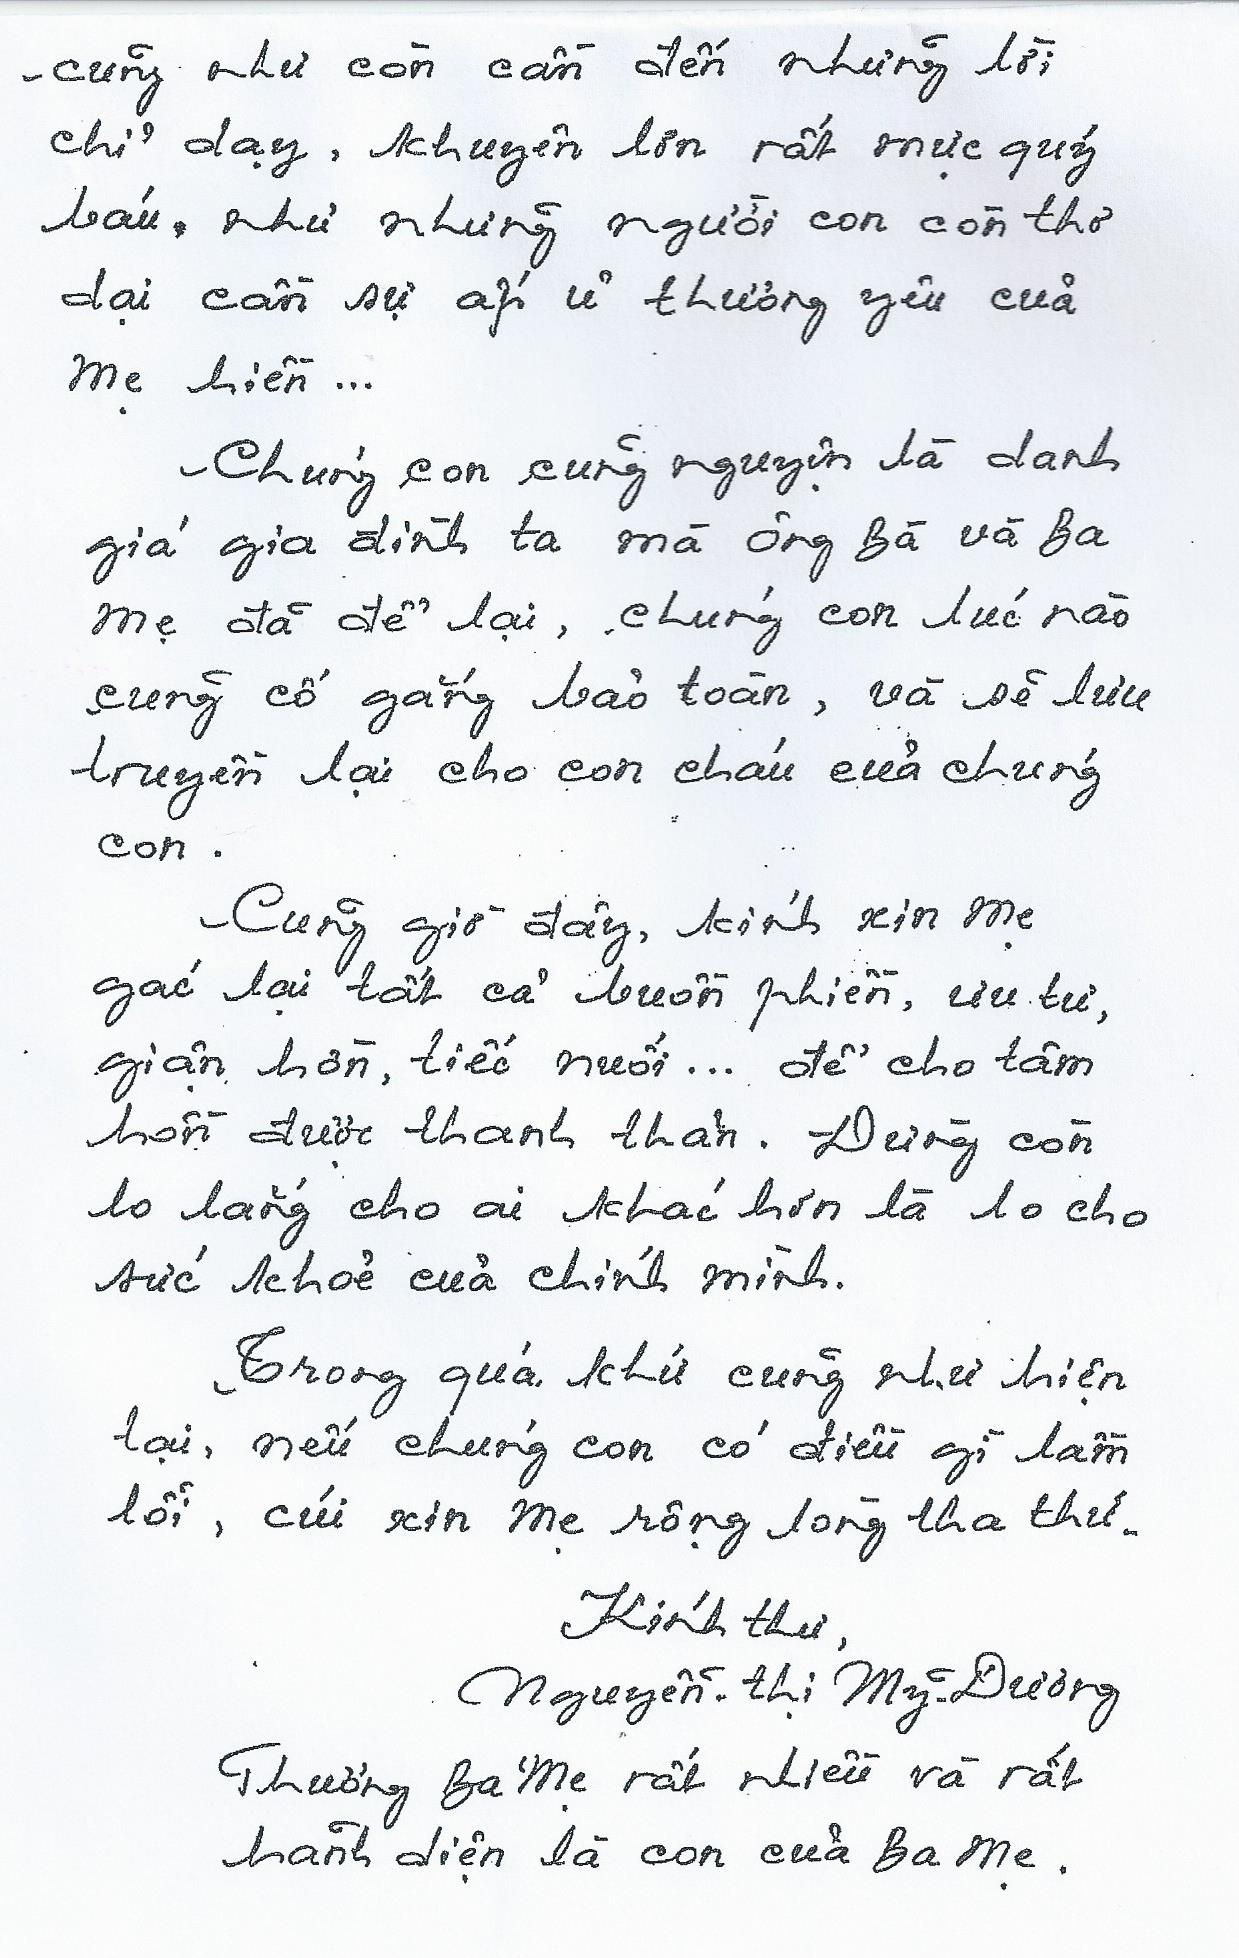 cũng như còn cần đến những lời
chỉ dạy, khuyên lơn rất mực quý
báu, như những người con còn thơ
dại cần sự ấp ủ thương yêu của
Mẹ hiền...
Chúng con cũng nguyện là danh
giá gia đình ta mà Ông Bà và Ba
Mẹ đã để lại, chúng con lúc nào
cũng cố gắng bảo toàn, và sẽ lưu
truyền lại cho con cháu của chúng
con.
Cũng giờ đây, kính xin Mẹ
gác lại tất cả buồn phiền, ưu tư,
giận hờn, tiếc nuối... để cho tâm
hồn được thanh thản. Đừng còn
lo lắng cho ai khác hơn là lo cho
sức khoẻ của chính mình.
Trong quá khứ cũng như hiện
tại, nếu chúng con có điều gì lầm
lỗi, cúi xin Mẹ rộng lòng tha thứ.
Kính thư,
Nguyễn-thị Mỹ-Dương
Thương Ba Mẹ rất nhiều và rất
hãnh diện là con của Ba Mẹ.